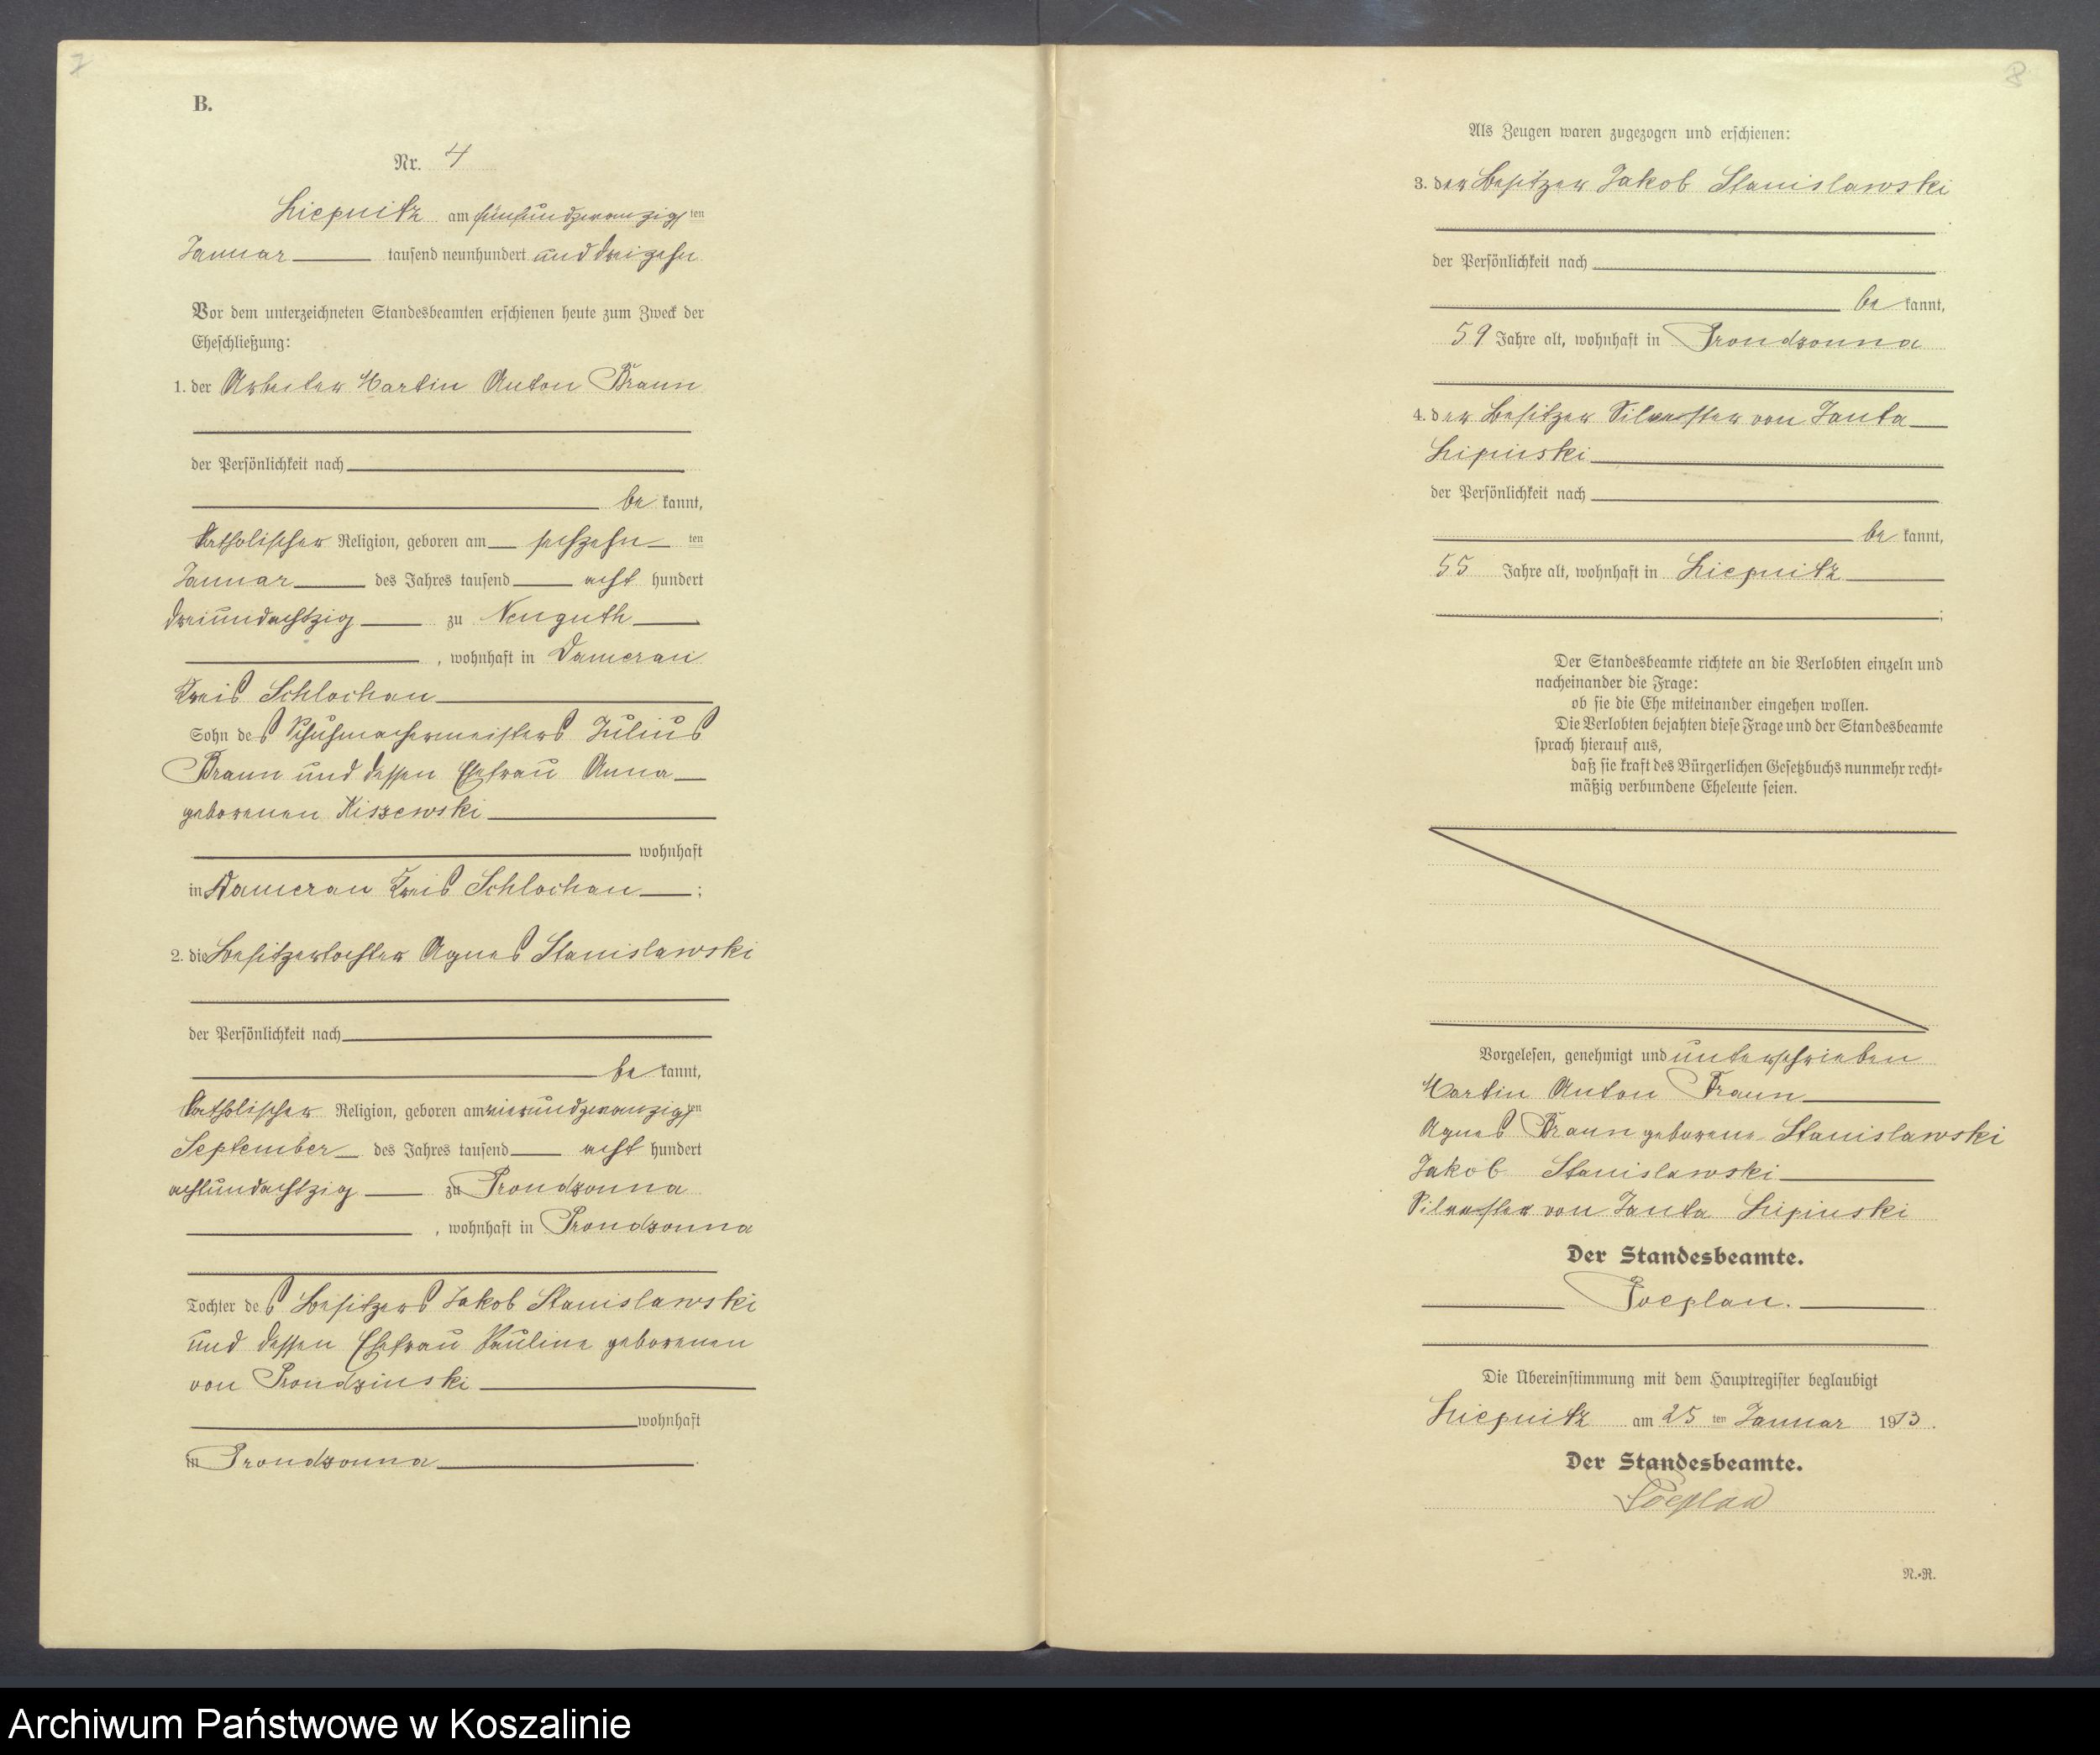 7
B.
Nr. 4
Liepnitz am fünfundzwanzigsten
Januar tausend neunhundert und dreizehn
Vor dem unterzeichneten Standesbeamten erschienen heute zum Zweck der
Eheschließung:
1. der Arbeiter Martin Anton Braun
der Persönlichkeit nach
be kannt,
katholischer Religion, geboren am sechzehn ten
Januar des Jahres tausend acht hundert
dreiundachtzig zu Neuguth
, wohnhaft in Damerau
Kreis Schlochau
Sohn des Schuhmachermeisters Julius
Braun und dessen Ehefrau Anna
geborenen Kiszewski
wohnhaft
in Damerau Kreis Schlochau ;
2. die Besitzertochter Agnes Stanislawski
der Persönlichkeit nach
be kannt,
katholischer Religion, geboren am vierundzwanzigsten
September des Jahres tausend acht hundert
achtundachtzig zu Prondzonna
, wohnhaft in Prondzonna
Tochter des Besitzers Jakob Stanislawski
und dessen Ehefrau Pauline geborenen
von Prondzinski
wohnhaft
in Prondzonna .
8
Als Zeugen waren zugezogen und erschienen:
3. der Besitzer Jakob Stanislawski
der Persönlichkeit nach
be kannt,
59 Jahre alt, wohnhaft in Prondzonna
4. der Besitzer Silvester von Janta
Lipinski
der Persönlichkeit nach
be kannt,
55 Jahre alt, wohnhaft in Liepnitz
;
Der Standesbeamte richtete an die Verlobten einzeln und
nacheinander die Frage:
ob sie die Ehe miteinander eingehen wollen.
Die Verlobten bejahten diese Frage und der Standesbeamte
sprach hierauf aus,
daß sie kraft des Bürgerlichen Gesetzbuchs nunmehr recht-
mäßig verbundene Eheleute seien.
Vorgelesen, genehmigt und unterschrieben
Martin Anton Braun
Agnes Braun geborene Stanislawski
Jakob Stanislawski
Silvester von Janta Lipinski
Der Standesbeamte.
Poeplau.
Die Übereinstimmung mit dem Hauptregister beglaubigt
Liepnitz am 25 ten Januar 1913.
Der Standesbeamte.
Poeplau
N.-R.
Archiwum Państwowe w Koszalinie